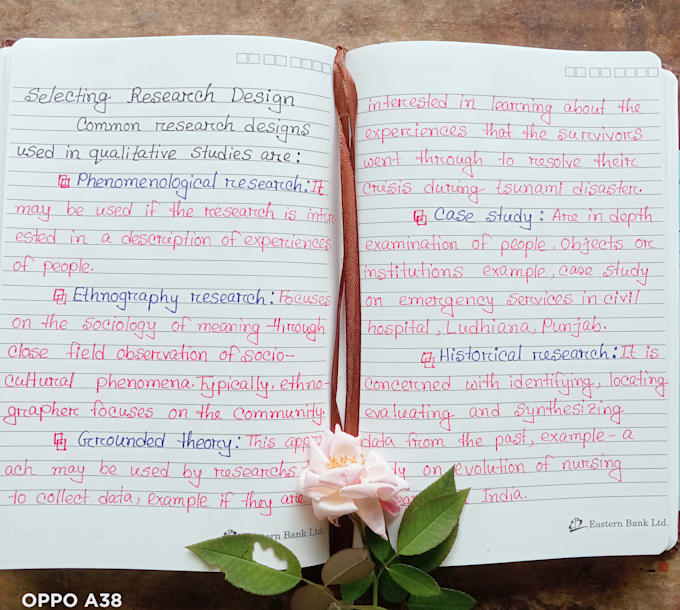 Selecting Research Design
Common research designs
used in qualitative studies are:
Phenomenological research: It
may be used if the research is inter
ested in a description of experiences
of people.
Ethnography research: Focuses
on the sociology of meaning through
close field observation of socio-
cultural phenomena. Typically, ethno-
grapher focuses on the community.
Grounded theory: This appro
ach may be used by researchs
to collect data, example if they are
Eastern Bank Ltd.
interested in learning about the
experiences that the survivors
went through to resolve their
crisis during tsunami disaster.
Case study: Are in depth
examination of people. Objects or
institutions example, case study
on emergency services in civil
hospital, Ludhiana, Punjab.
Historical research: It is
concerned with identifying, locating
evaluating and synthesizing
data from the past, example - a
on evolution of nursing
India.
Eastern Bank Ltd.
OPPO A38